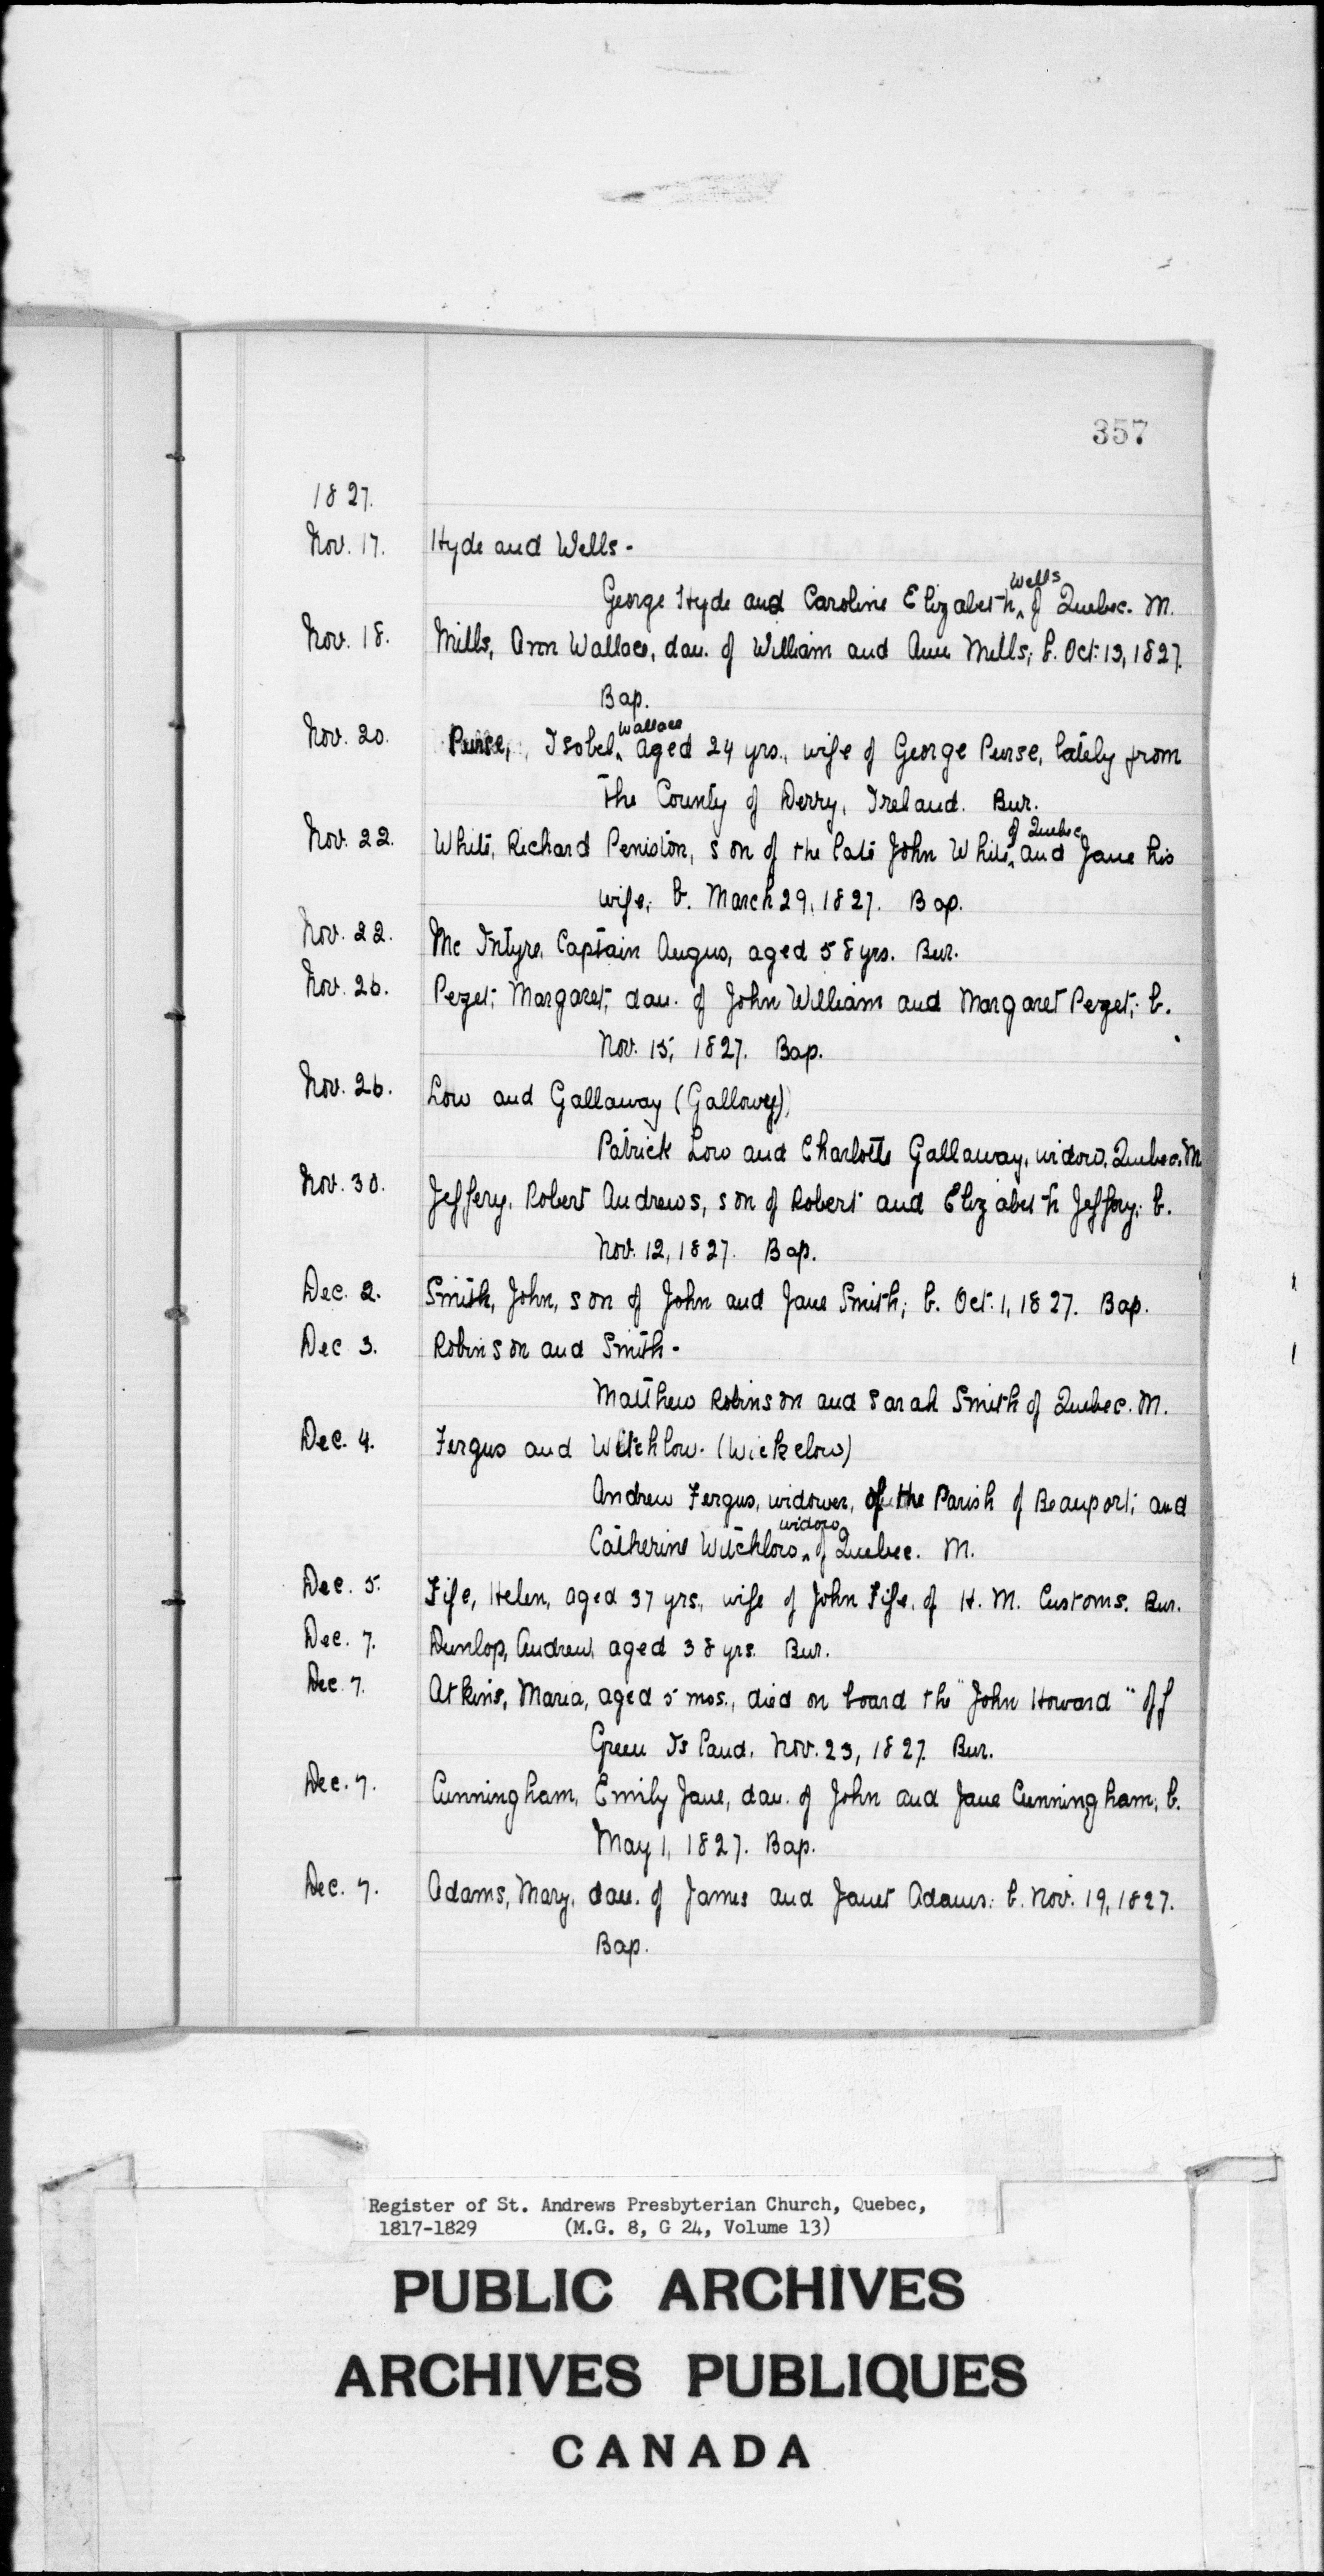 357
1827.
Nov. 17. Hyde and Wells -
George Hyde and Caroline Elizabeth ^ Wells of Quebec. M.
Nov. 18. Mills, Ann Wallace, dau. of William and Ann Mills; b. Oct. 13, 1827.
Bap.
Nov. 20. Purse, Isobel ^ Wallace aged 24 yrs., wife of George Purse, lately from
the County of Derry, Ireland. Bur.
Nov. 22. White, Richard Peniston, son of the late John White ^ of Quebec and Jane his
wife; b. March 29, 1827. Bap.
Nov. 22. McIntyre, Captain Angus, aged 58 yrs. Bur.
Nov. 26. Pezet, Margaret, dau. of John William and Margaret Pezet; b.
Nov. 15, 1827. Bap.
Nov. 26. Low and Gallaway (Galloway)
Patrick Low and Charlotte Gallaway, widow, Quebec. M.
Nov. 30. Jeffery, Robert Andrews, son of Robert and Elizabeth Jeffery; b.
Nov. 12, 1827. Bap.
Dec. 2. Smith, John, son of John and Jane Smith; b. Oct. 1, 1827. Bap.
Dec 3. Robinson and Smith -
Matthew Robinson and Sarah Smith of Quebec. M.
Dec. 4. Fergus and Witchlow. (Wickelow)
Andrew Fergus, widower, of the Parish of Beauport; and
Catherine Witchlow ^ widow of Quebec. M.
Dec. 5. Fife, Helen, aged 37 yrs., wife of John Fife, of H. M. Customs. Bur.
Dec. 7. Dunlop, Andrew, aged 38 yrs. Bur.
Dec. 7. Atkins, Maria, aged 5 mos., died on board the "John Howard" off
Green Island, Nov. 23, 1827. Bur.
Dec. 7. Cunningham, Emily Jane, dau. of John and Jane Cunningham; b.
May 1, 1827. Bap.
Dec. 7. Adams, Mary, dau. of James and Janet Adams: b. Nov. 19, 1827.
Bap.
Register of St. Andrews Presbyterian Church, Quebec,
1817-1829 (M.G. 8, G 24, Volume 13)
PUBLIC ARCHIVES
ARCHIVES PUBLIQUES
CANADA